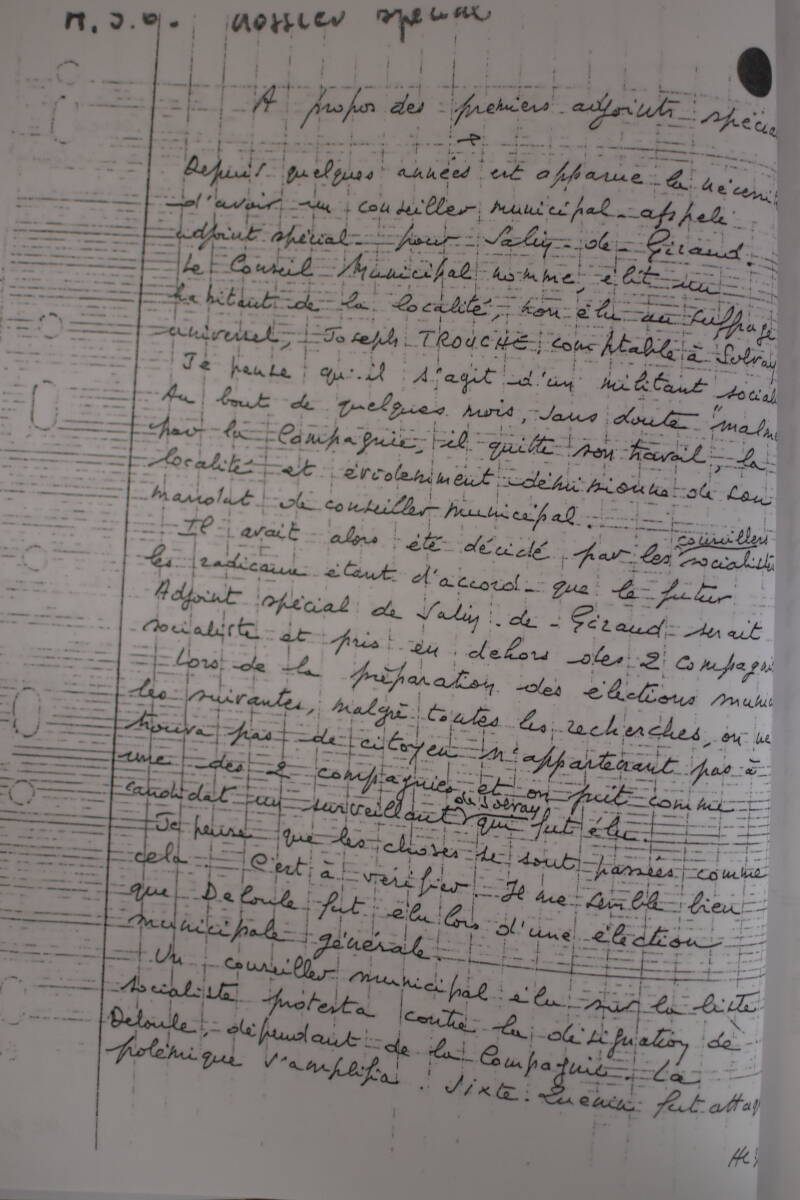 M.J.O. dossier spécial
A propos des premiers adjoints spécia
Depuis quelques années est apparue la nécessit
d'avoir un conseiller municipal appelé
adjoint spécial pour Salin-de-Giraud.
Le Conseil Municipal nomme, élit un
habitant de la localité, non élu au suffrage
universel, Joseph TROUCHE, comptable à Solvay
Je pense qu'il s'agit d'un militant social
Au bout de quelques mois, sans doute "malm
par la Compagnie, il quitte son travail, la
localité et évidemment démissionne de son
mandat de conseiller municipal.
Il avait alors été décidé par les conseillers socialistes
les radicaux étant d'accord que le futur
Adjoint spécial de Salin-de-Giraud serait
socialiste et pris en dehors des 2 compagni
Lors de la préparation des élections munici
les suivantes, malgré toutes les recherches, on ne
trouva pas de citoyen n'appartenant pas à
une des 2 compagnies et on prit comme
candidat un surveillant de Solvay qui fut élu.
Je pense que les choses se sont passées comme
cela. C'est à vérifier. Il me semble bien
que Deloule fut élu lors d'une élection
municipale générale.
Un conseiller municipal élu sur la liste
socialiste protesta contre la désignation de
Deloule, dépendant de la Compagnie. La
polémique s'amplifia. Sixte-Quenin fut attaq